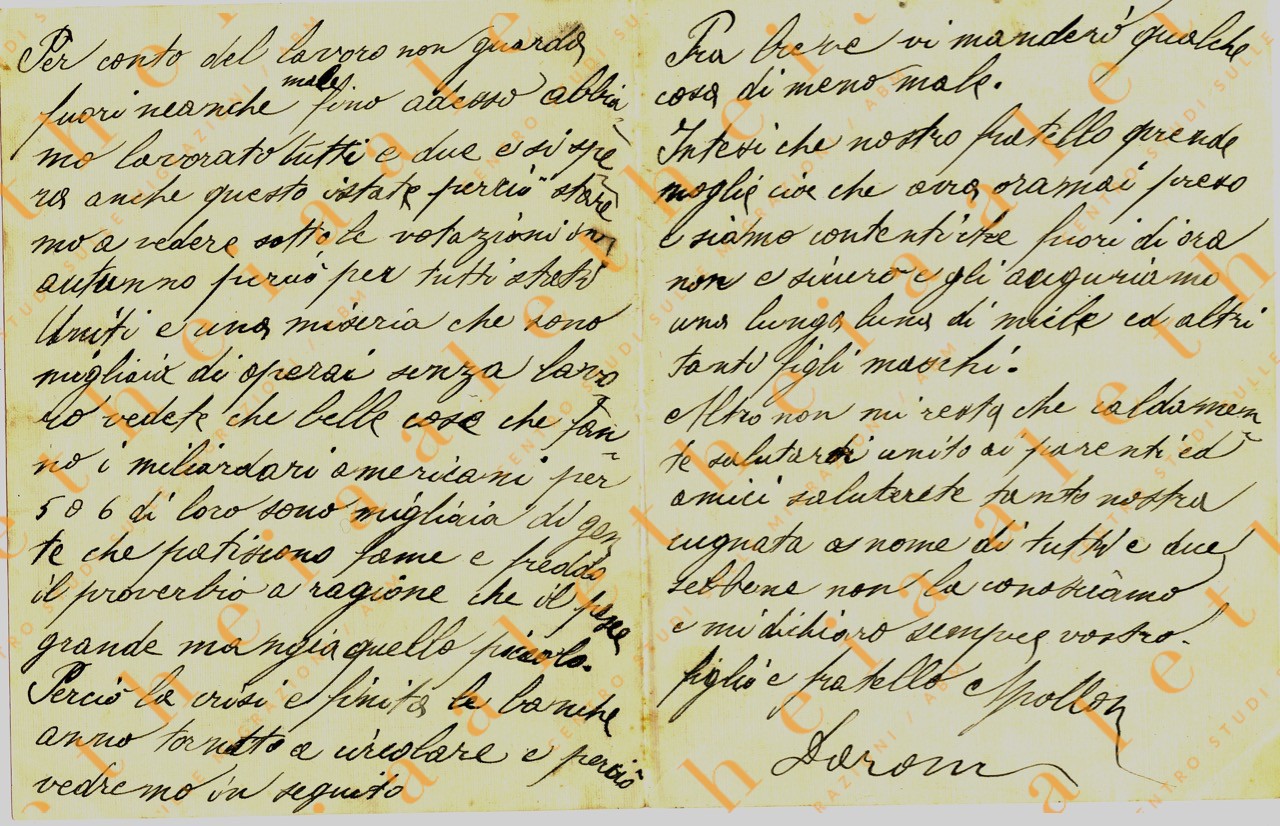 Per conto del lavoro non guarda
fuori neanche male fino adesso abbia-
mo lavorato tutti e due e si spe-
ra anche questo istate perciò stare-
mo a vedere sotto le votazioni in
autunno perciò per tutti stati
Uniti e una miseria che sono
migliaia di operai senza lavo-
ro vedete che belle cose che fan-
no i miliardari americani per
5 o 6 di loro sono migliaia di gen
te che patiscono fame e freddo
il proverbio a ragione che il pesce
grande mangia quello piccolo.
Perciò la crisi e finita le banche
anno tornatto a circolare e perciò
vedremo in seguito
Fra breve vi manderò qualche
cosa di meno male.
Intesi che nostro fratello prende
moglie cioe che avra oramai preso
e siamo contenti che fuori di ora
non e sicuro e gli auguriamo
una lunga luna di miele ed altri
tanti figli maschi.
Altro non mi resta che caldamen-
te salutarvi unito ai parenti ed
amici saluterete tanto nostra
cugnata a nome di tutti e due
sebbene non la conosciamo
e mi dichiaro sempre vostro
figlio e fratello Apollon